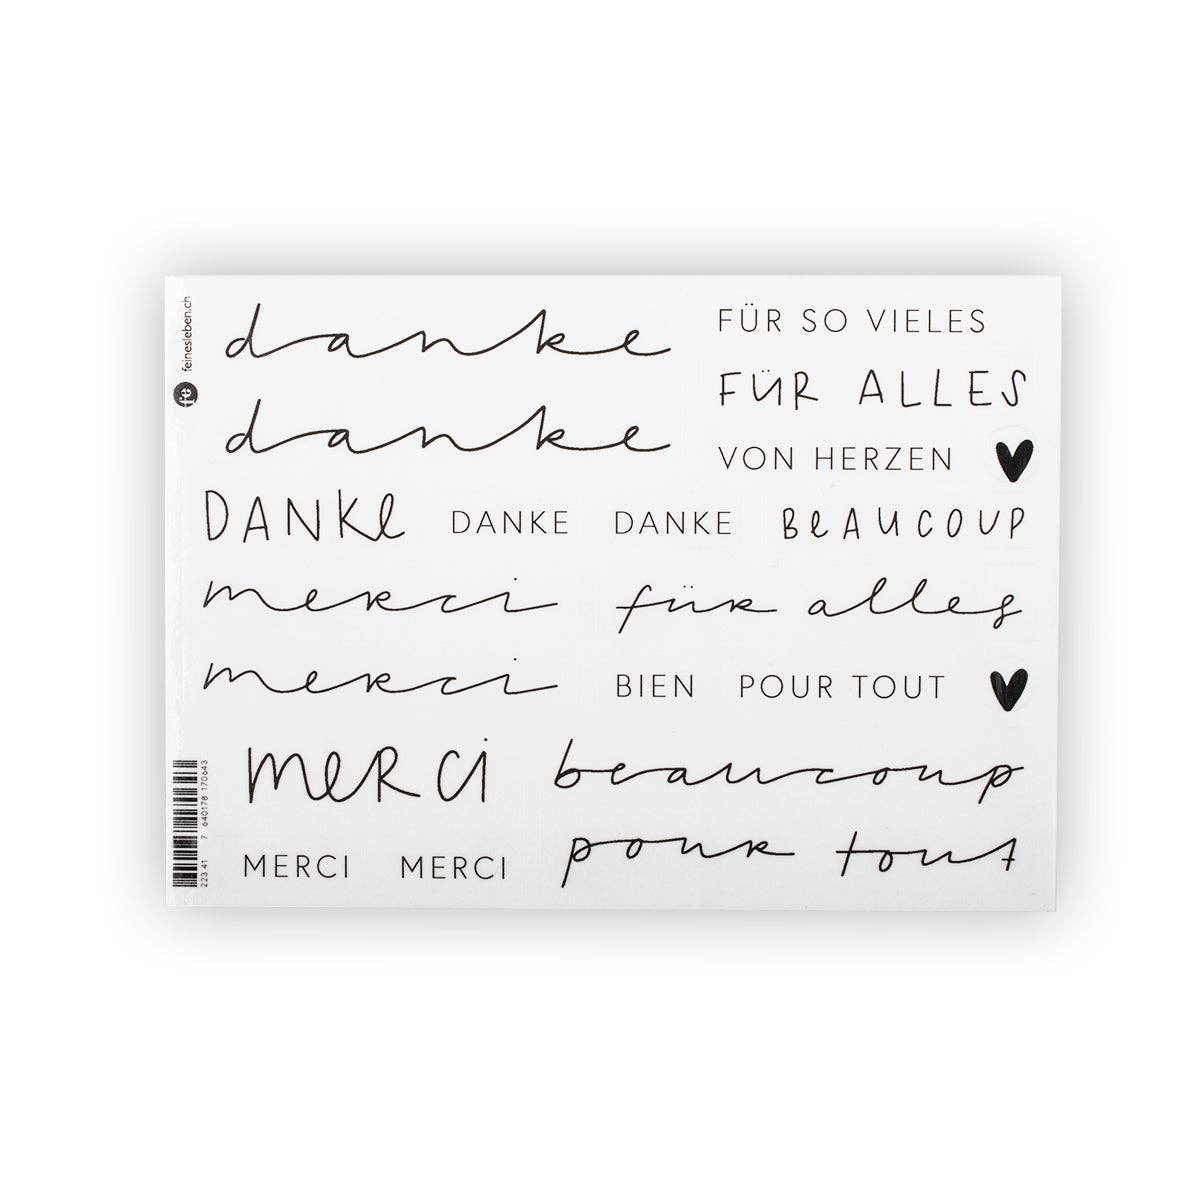 danke
FÜR SO VIELES
FÜR ALLES
danke
VON HERZEN
DANKE DANKE DANKE BEAUCOUP
merci für alles
merci BIEN POUR TOUT
merci beaucoup
MERCI MERCI pour tout
feinesleben.ch
fe
223 41
7 640178 170643